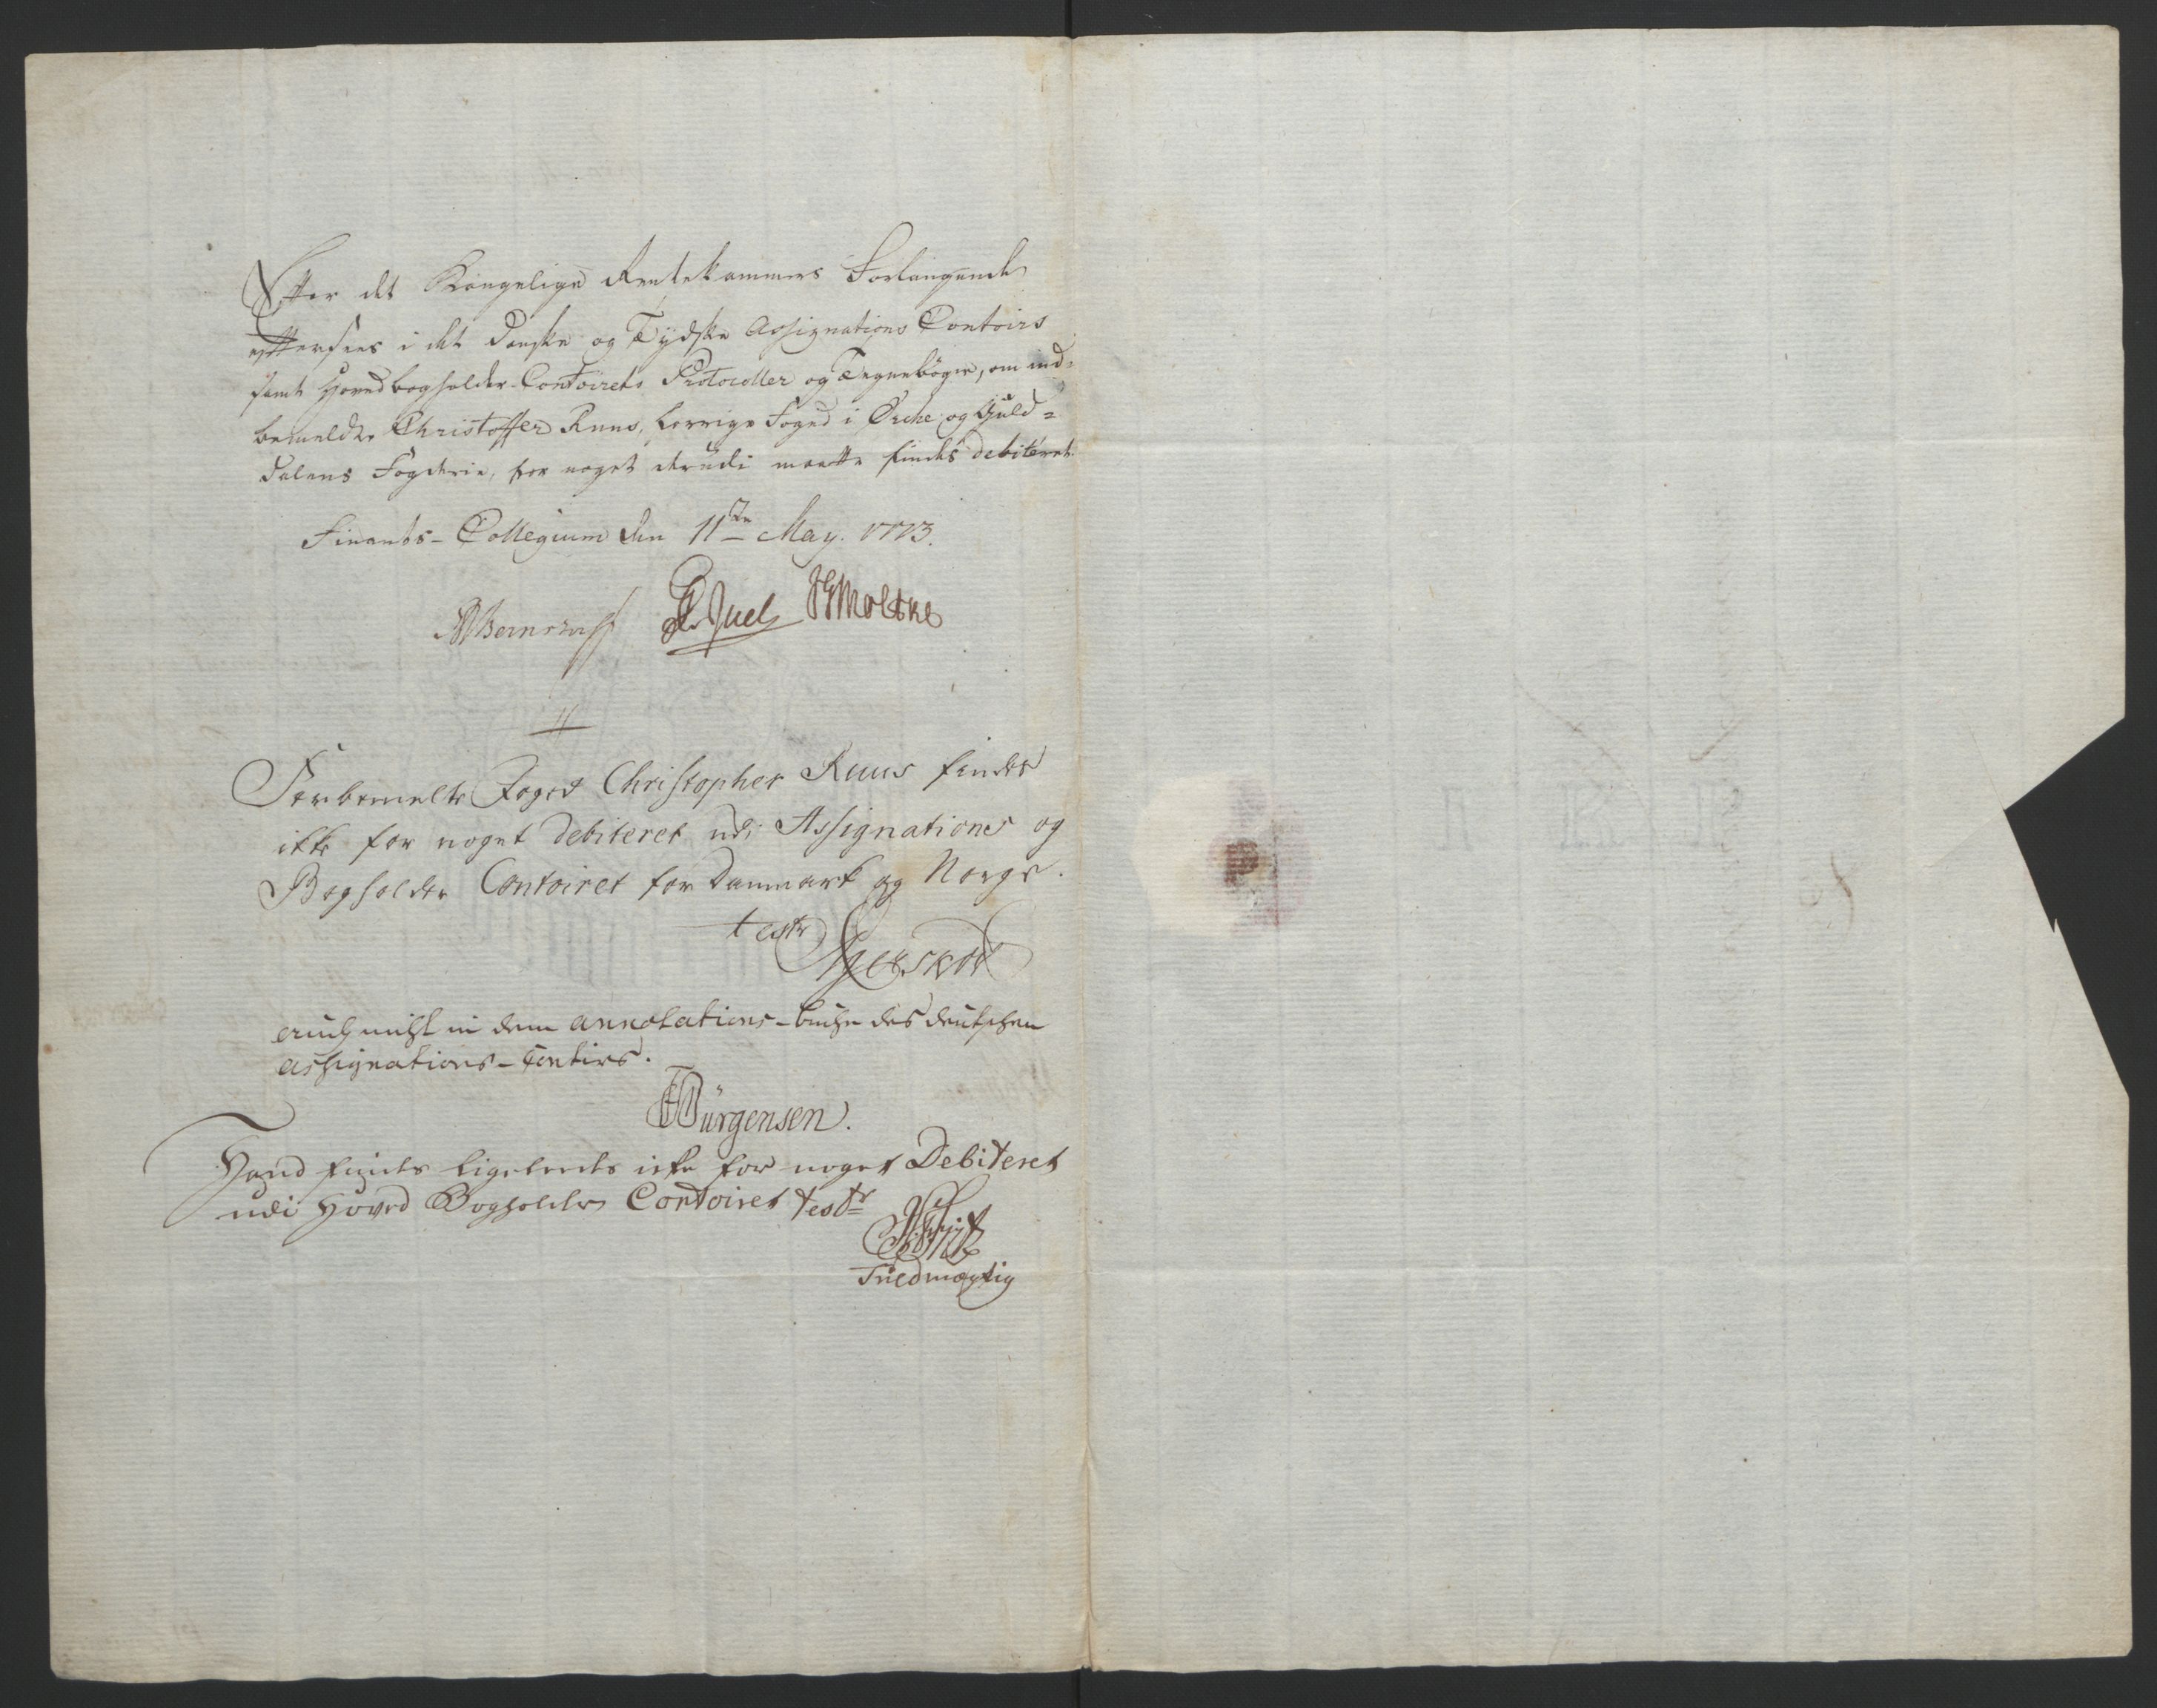 Efter det Kongelige Rentekammers Forlangende
eftersees i det Danske og Tydske Assignations Contoirs
samt Hovedbogholder-Contoirets Protocoller og Tegnebøger, om ind-
bemeldte Christoffer Ruus, forrige Foged i Orche- og Guld-
dalens Fogderie, for noget derudi maatte findes debiteret.
Finants-Collegium den 11te May. 1773.
Bernstorff Juel Moltke
Forbemelte Foged Christopher Ruus findes
ikke for noget debiteret udi Assignations og
Bogholder Contoiret for Danmark og Norge.
teste
auch nicht in dem annotations-buche des deutschen
assignations-Contirs.
Jürgensen.
Hand findes ligeledes icke for noget Debiteret
udi Hoved Bogholder Contoiret teste
Fuldmægtig